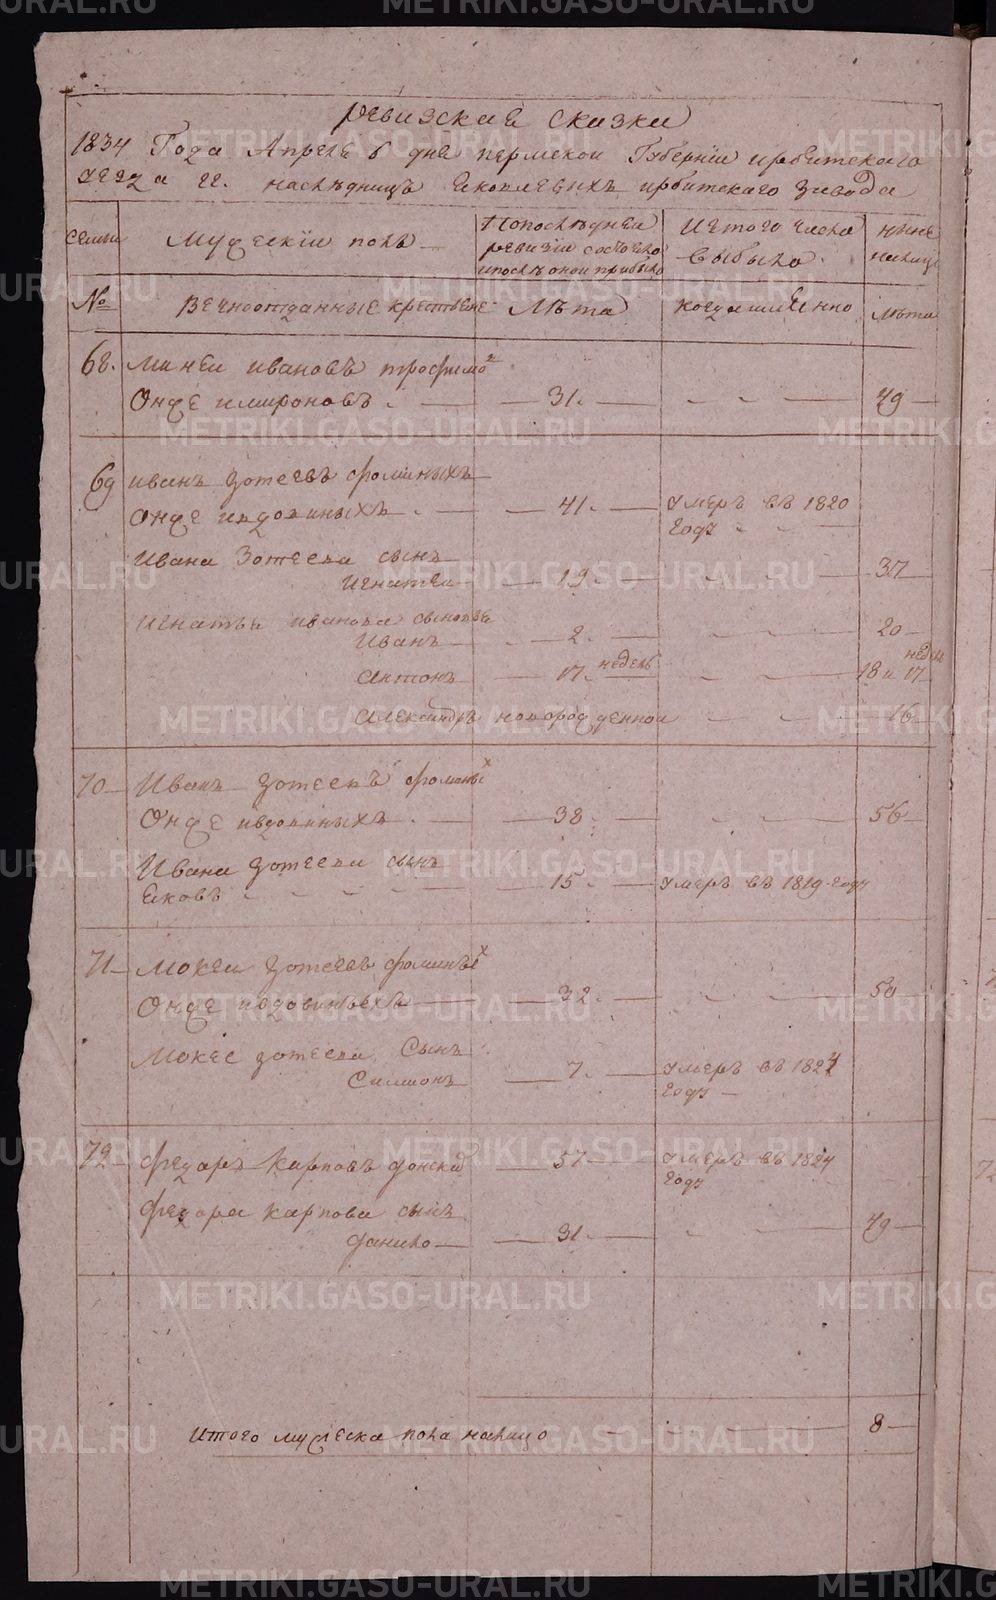 Ревизские сказки
1834 Года Апреля 6 дня пермской Губернiи ирбитскаго
уезда гг. наследницъ Яковлевыхъ ирбитскаго завода
семьи
Мужескiи полъ
Попоследней
ревизiи состояло
ипослѣ оной прибыло
Изтого числа
выбыло
ныне
налицо
№
Вечноотданные крестьяне
Лѣта
когда именно
лѣта
68. Миней ивановъ трофимо
Онже имироновъ 31. 49
69 иванъ Зотеевъ фоминыхъ
Онже ивдовиныхъ 41. умеръ въ 1820
Году
Ивана Зотеева сынъ
Игнатей 19 37
Игнатья иванова сыновья
Иванъ 2. 20
Антонъ 17. недель 18 и 17 недель
Александръ новорожденной 16
70 Иванъ Зотеевъ фомины х
Онже ивдовиныхъ 38. 56
Ивана Зотеева сынъ
Яковъ 15. умеръ въ 1819 году
71 Мокей Зотеевъ фомины х
Онже ивдовиныхъ 32. 50
Мокея Зотеева Сынъ
Симионъ 7. умеръ въ 1824
Году
72 Федоръ Карповъ донских 57 умеръ въ 1824
Году
Федора Карпова сынъ
Данило 31. 49
Итого мужеска пола налицо 8
METRIKI.GASO-URAL.RU